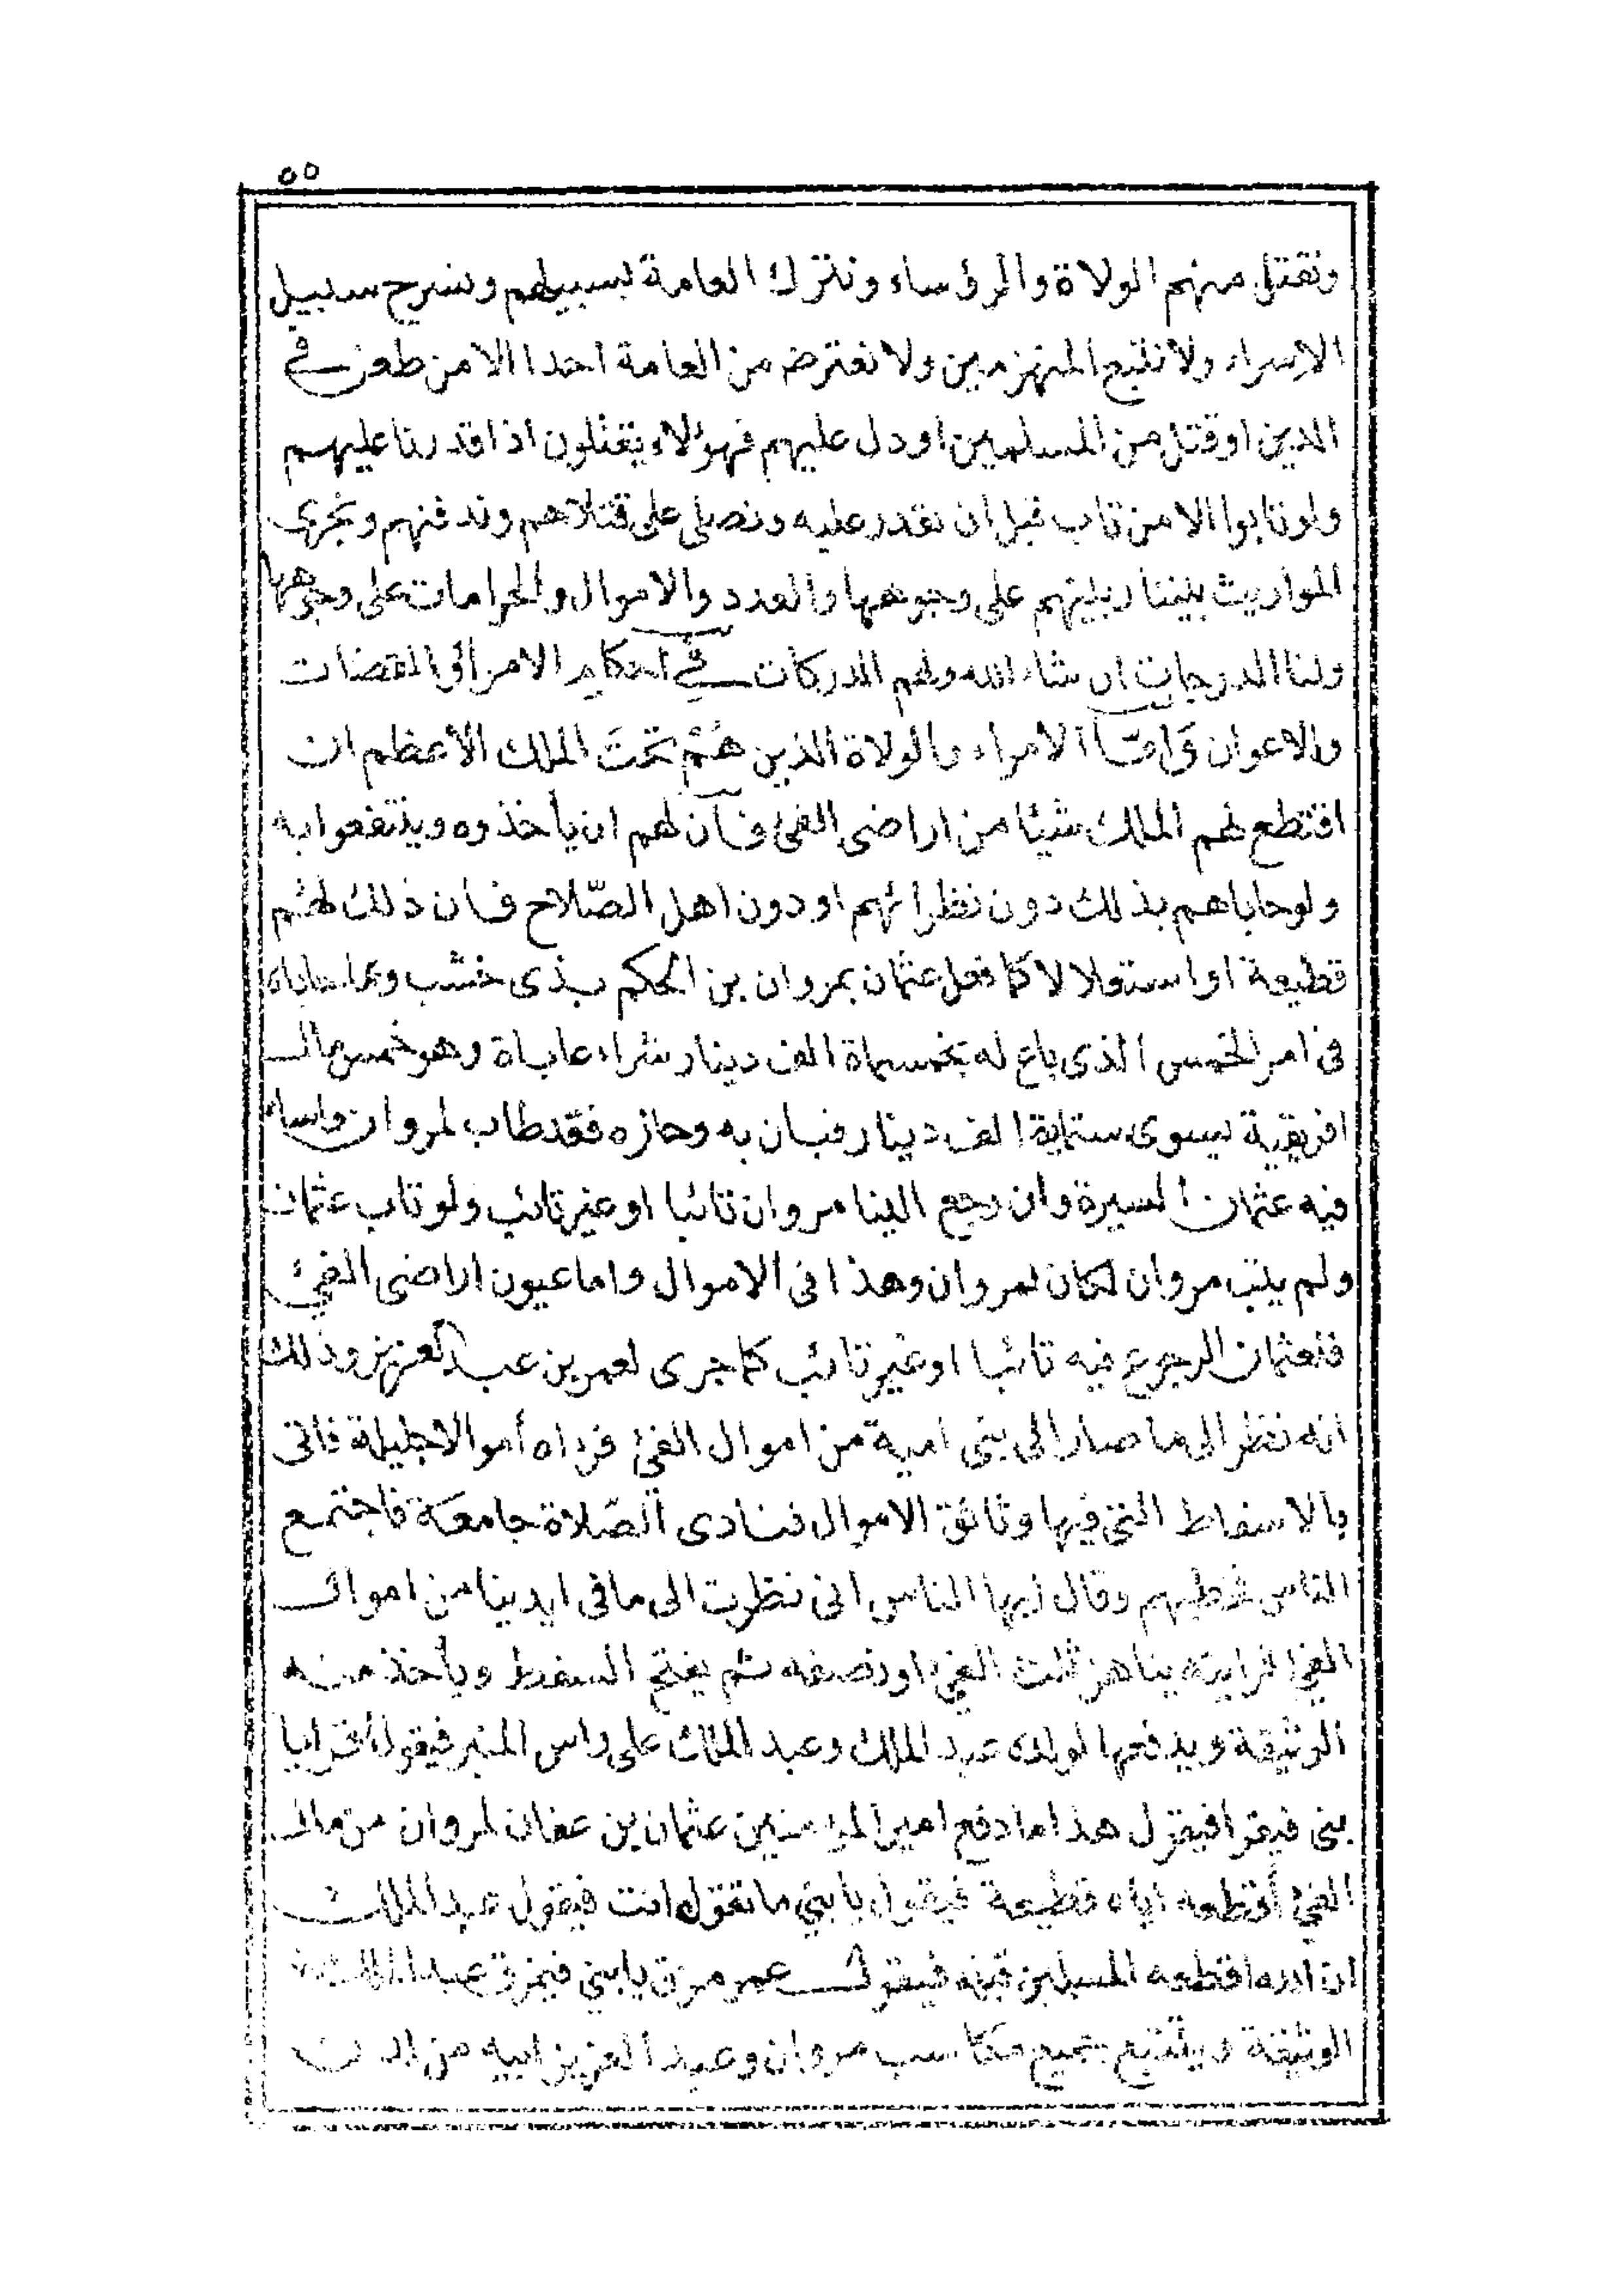 ٥٥
ونقتل منهم الولاة والرؤساء ونترك العامة لسبيلهم ونسرح سبيل
الاسراء ولا نتبع المنهزمين ولا نعترض من العامة احدا الا من طعن في
الدين او قتل من المسلمين او دل عليهم فهؤلاء يقتلون اذا قدرنا عليهم
ولو تابوا الا من تاب قبل ان نقدر عليه ونصلى على قتلاهم وندفنهم ونجرى
المواريث بيننا وبينهم على وجوهها والعدد والاموال والحرامات على وجوهها
ولنا الدرجات ان شاء الله ولهم الدركات في احكام الامراؤ القضات
والاعوان وَامّا الامراء والولاة الذين هُمْ تحتَ الملك الأعظم ان
اقتطع لهم الملك شيئا من اراضى الفئ فان لهم ان يأخذوه وينتفعوا به
ولو حاباهم بذلك دون نظرائهم او دون اهل الصّلاح فان ذلك لهم
قطيعة او استغلالا كما فعل عثمان بمروان بن الحكم بذى خشب وبما حاباه
فى امر الخمس الذى باع له بخمسماة الف دينار شراء عاباة وهو خمس مال
افريقية يسوى ستماية الف دينار فبان به وحازه فقد طاب لمروان واساء
فيه عثمان السيرة وان رجع الينا مروان تائبا او غير تائب ولو تاب عثمان
ولم يتب مروان لكان لمروان وهذا فى الاموال واما عيون اراضى الفئ
فلعثمان الرجوع فيه تائبا او غير تائب كما جرى لعمر بن عبد العزيز وذلك
انه نظر الى ما صار الى بنى امية من اموال الفئ فراه أموالا جليلة فاتى
بالاسفاط التى فيها وثائق الاموال فنادى الصّلاة جامعة فاجتمع
الناس فخطبهم وقال ايها الناس انى نظرت الى ما فى ايدينا من اموال
الفئ فرايته يناهز ثلث الفئ او نصفه ثم يفتح السفط ويأخذ منه
الوثيقة ويدفعها لولده عبد الملك وعبد الملك على راس المنبر فيقول اقرا يا
بنى فيقرا فيقول هذا ما دفع امير المؤمنين عثمان بن عفان لمروان من مال
الفئ أقطعه اياه قطيعة فيقول يا بني ما تقول انت فيقول عبد الملك
ان الله اقطعه المسلمين قبله فيقول عمر مزق يا بني فيمزق عبد الملك
الوثيقة ويتتبع جميع مكاسب مروان وعبد العزيز ابيه من